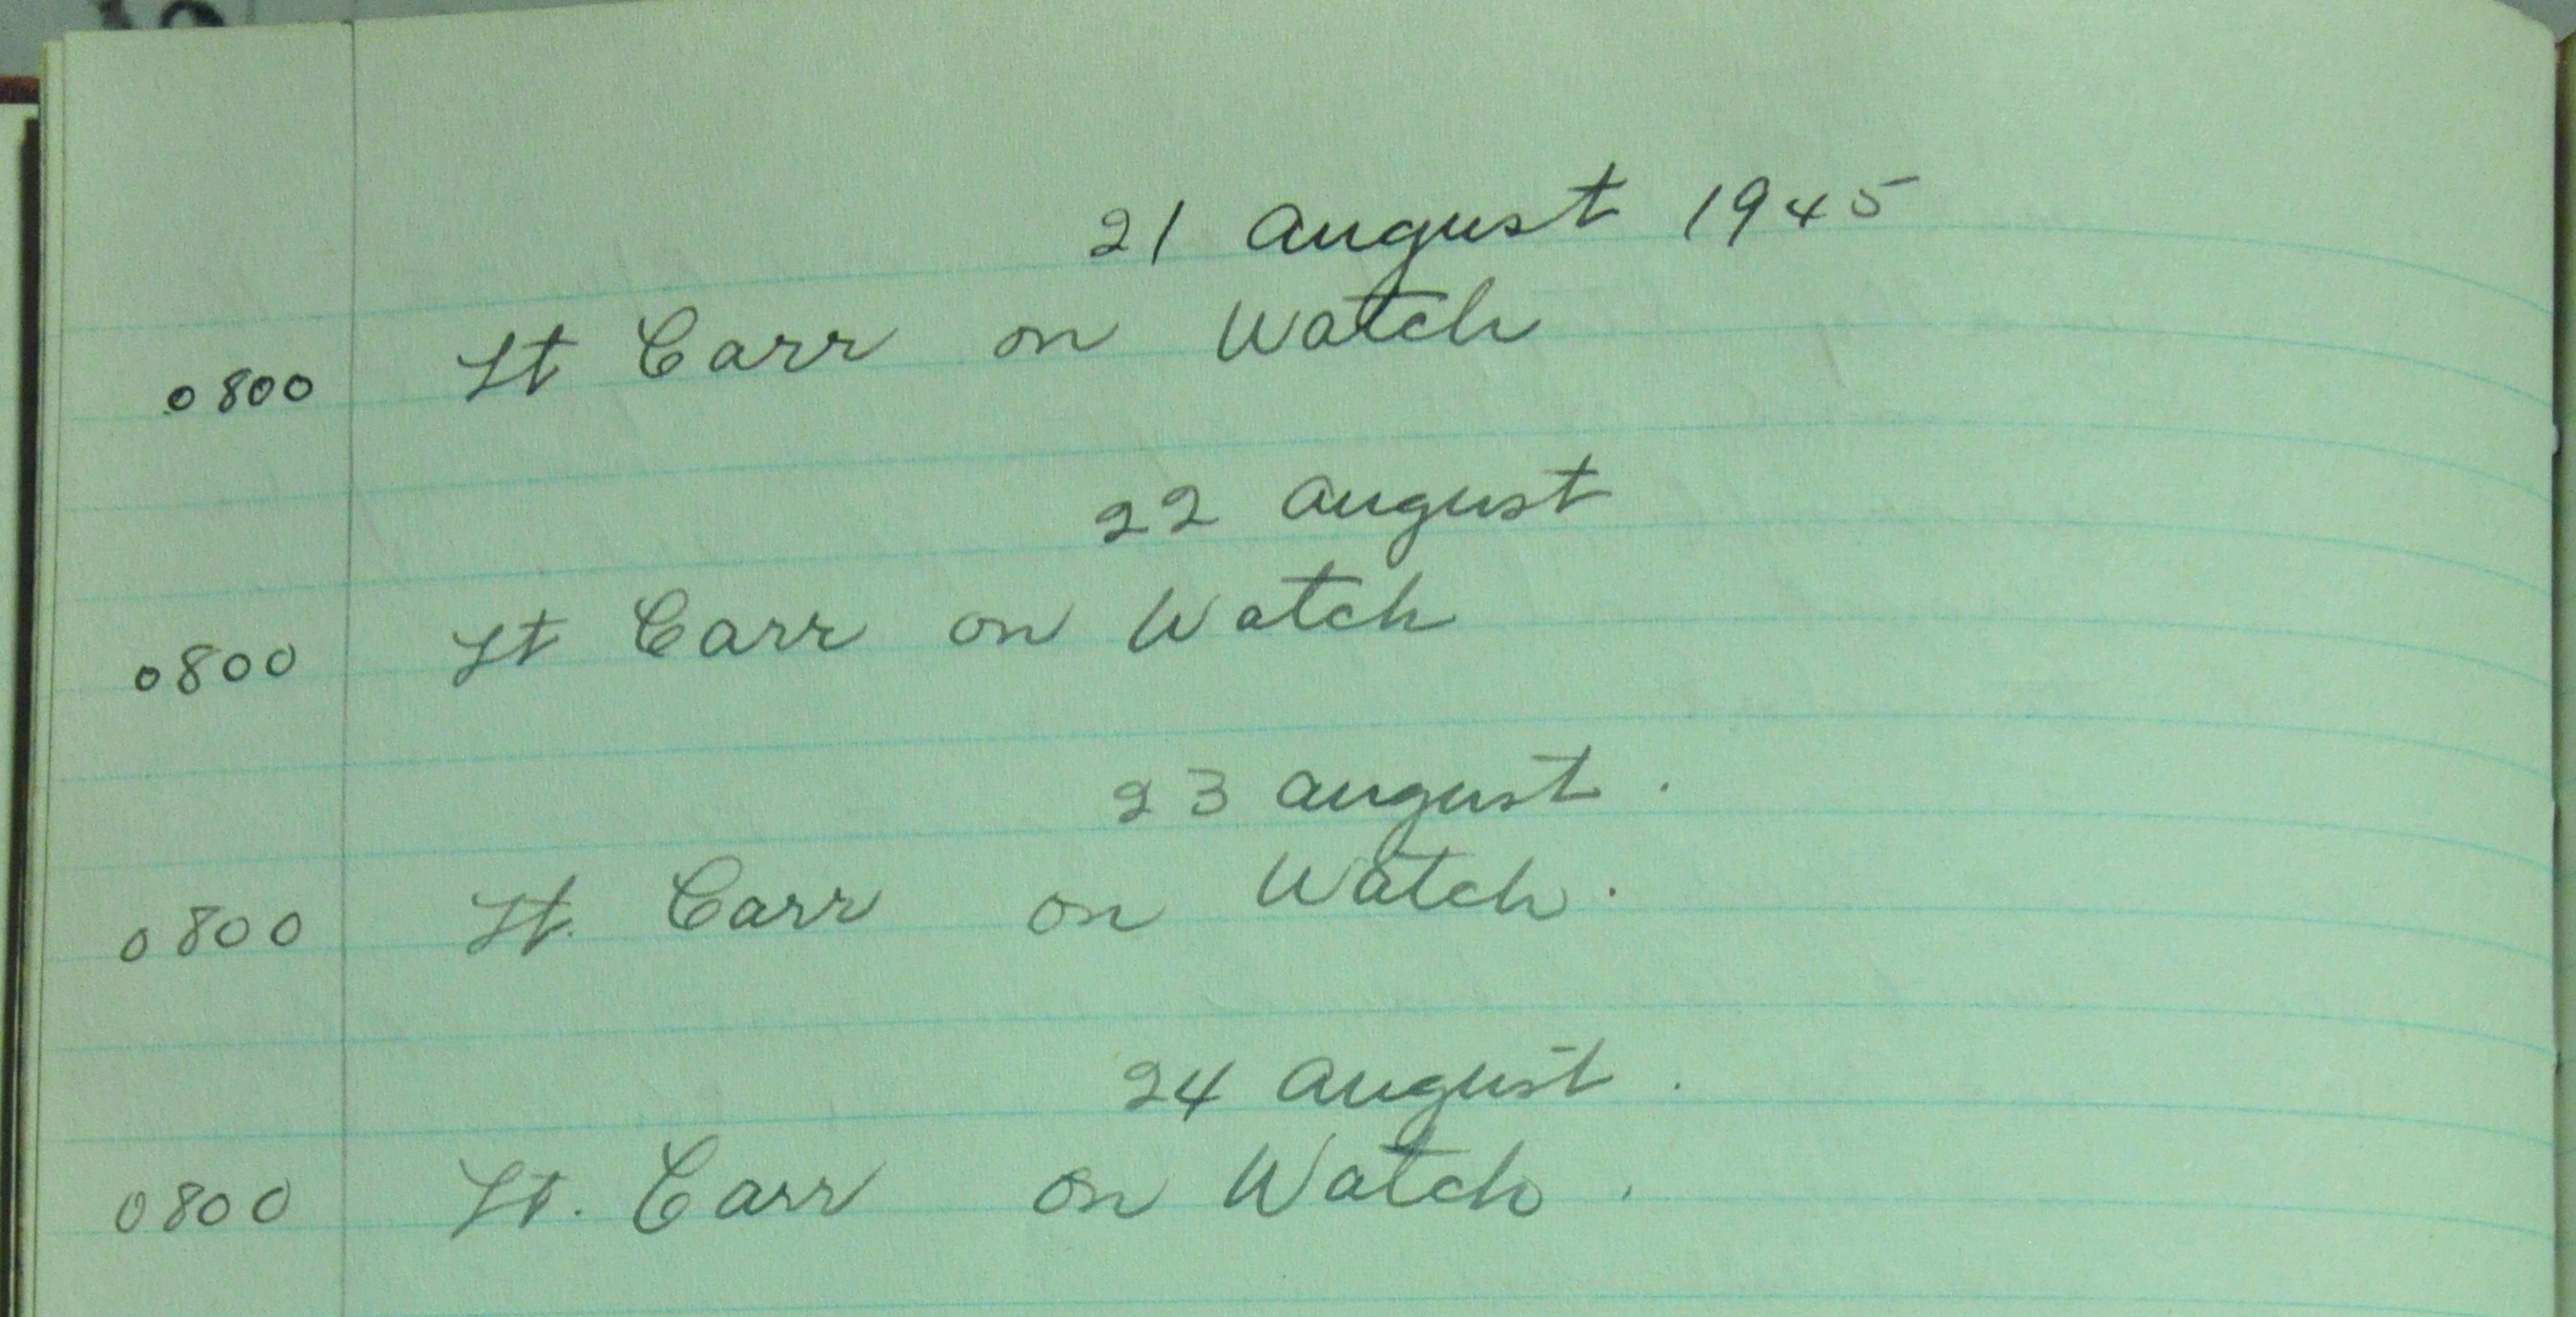 21 August 1945
0800 Lt Carr on Watch
22 August
0800 Lt Carr on Watch
23 August.
0800 Lt. Carr on Watch.
24 August.
0800 Lt. Carr on Watch.